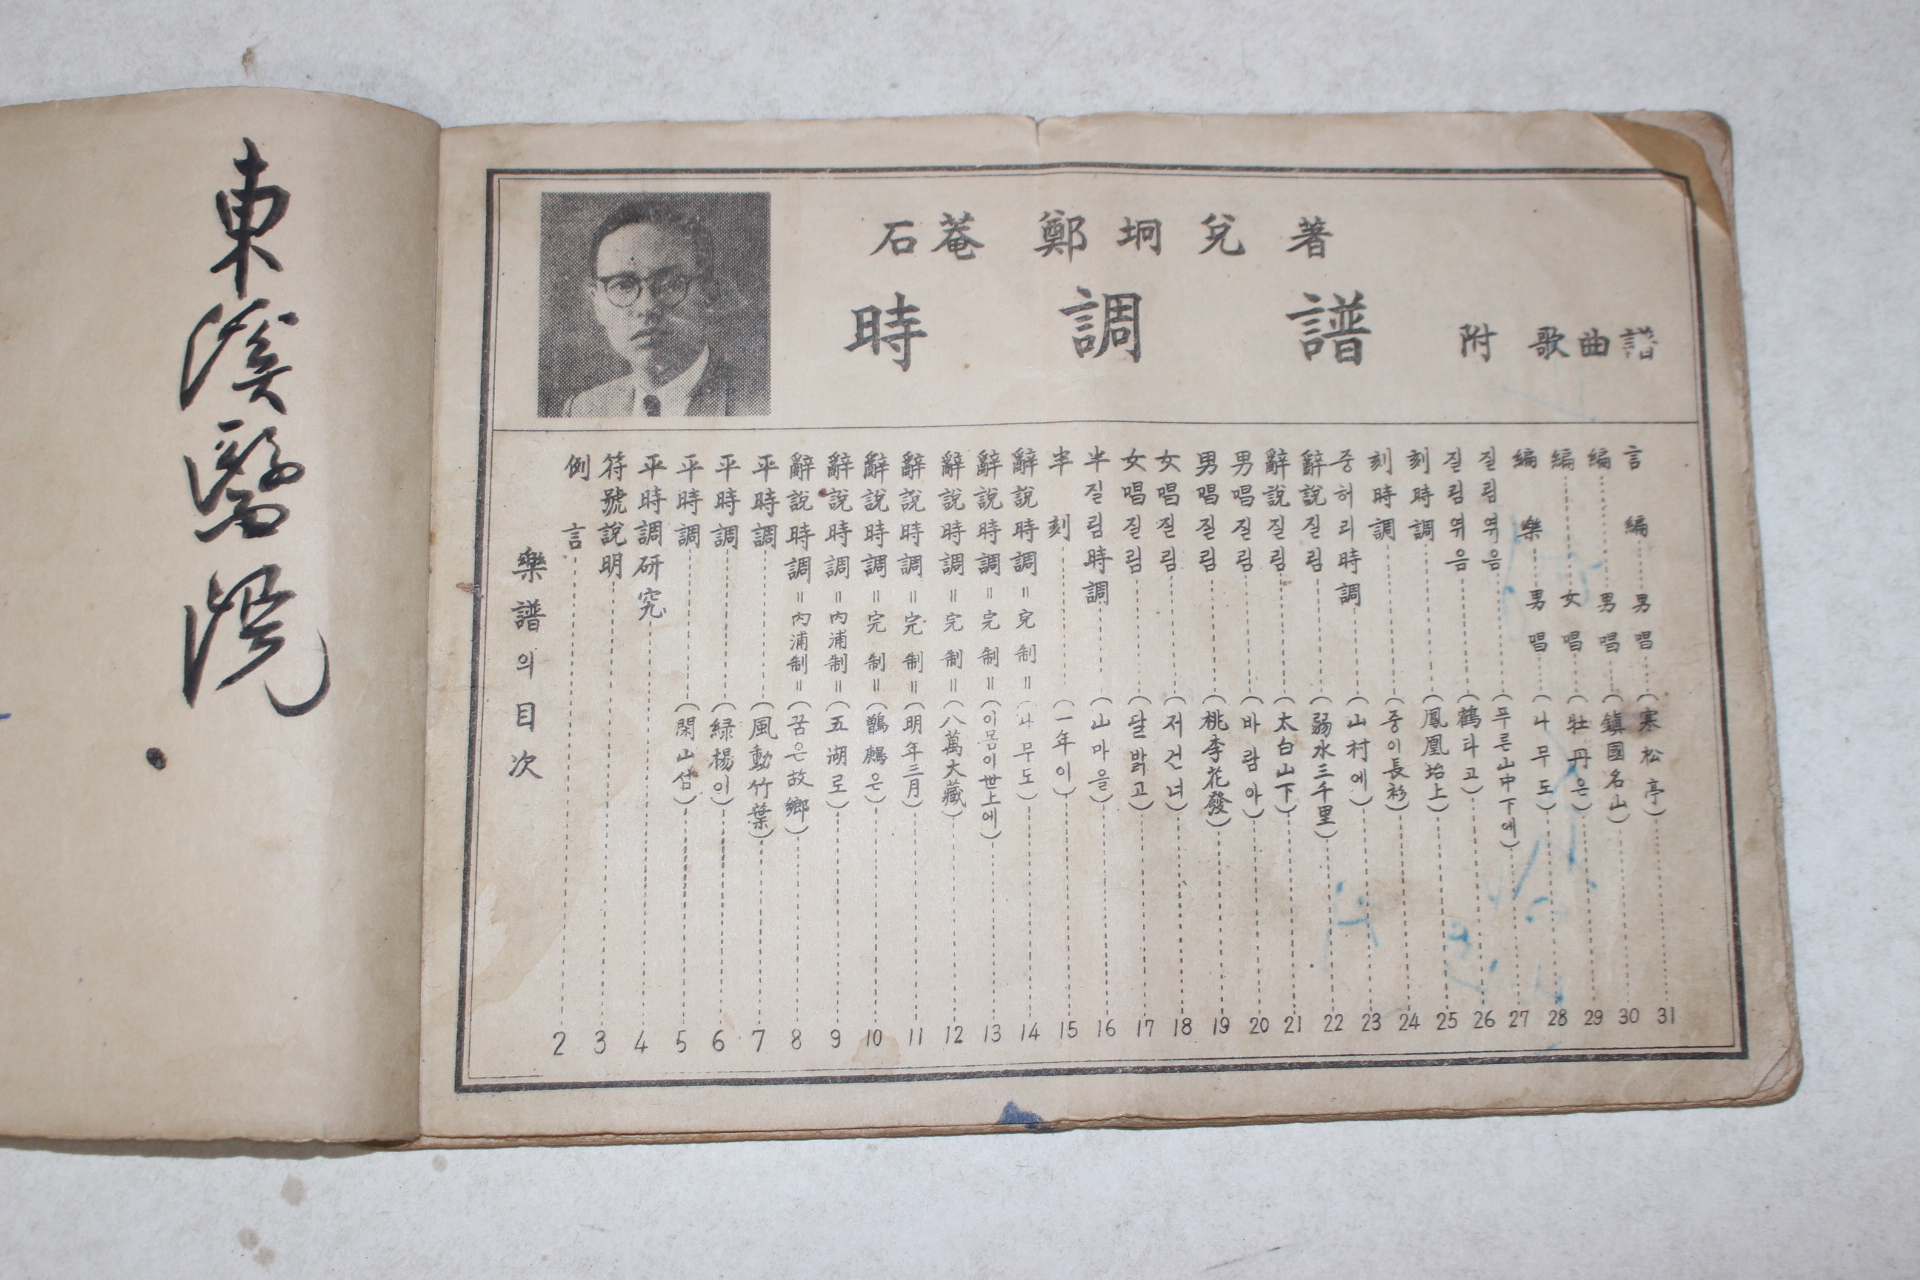 東溪醫院
石菴 鄭坰兌 著
時調譜 附 歌曲譜
樂譜의目次
例言 2
符號說明 3
平時調研究 4
平時調 (閑山섬) 5
平時調 (緑楊이) 6
平時調 (風動竹葉) 7
辭說時調=內浦制= (꿈은故鄉) 8
辭說時調=內浦制= (五湖로) 9
辭說時調=完制= 10
辭說時調=完制= (明年三月) 11
辭說時調=完制= (八萬大藏) 12
辭說時調=完制= (이몸이世上에) 13
辭說時調=完制= (나무도) 14
半刻 (一年이) 15
半질림時調 (山마을) 16
女唱질림 (달밝고) 17
女唱질림 (저건너) 18
男唱질림 (桃李花發) 19
男唱질림 (바람아) 20
辭說질림 (太白山下) 21
辭說질림 (弱水三千里) 22
중허리時調 (山村에) 23
刻時調 (중이長衫) 24
刻時調 (鳳凰坮上) 25
질림엮음 (鶴타고) 26
질림엮음 (푸른山中下에) 27
編樂 男唱 (나무도) 28
編 女唱 (牡丹은) 29
編 男唱 (鎮國名山) 30
言編 男唱 (寒松亭) 31